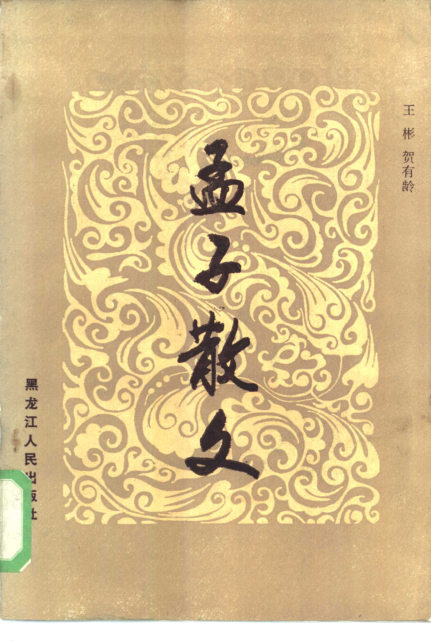 王彬 贺有龄
孟子散文
黑龙江人民出版社